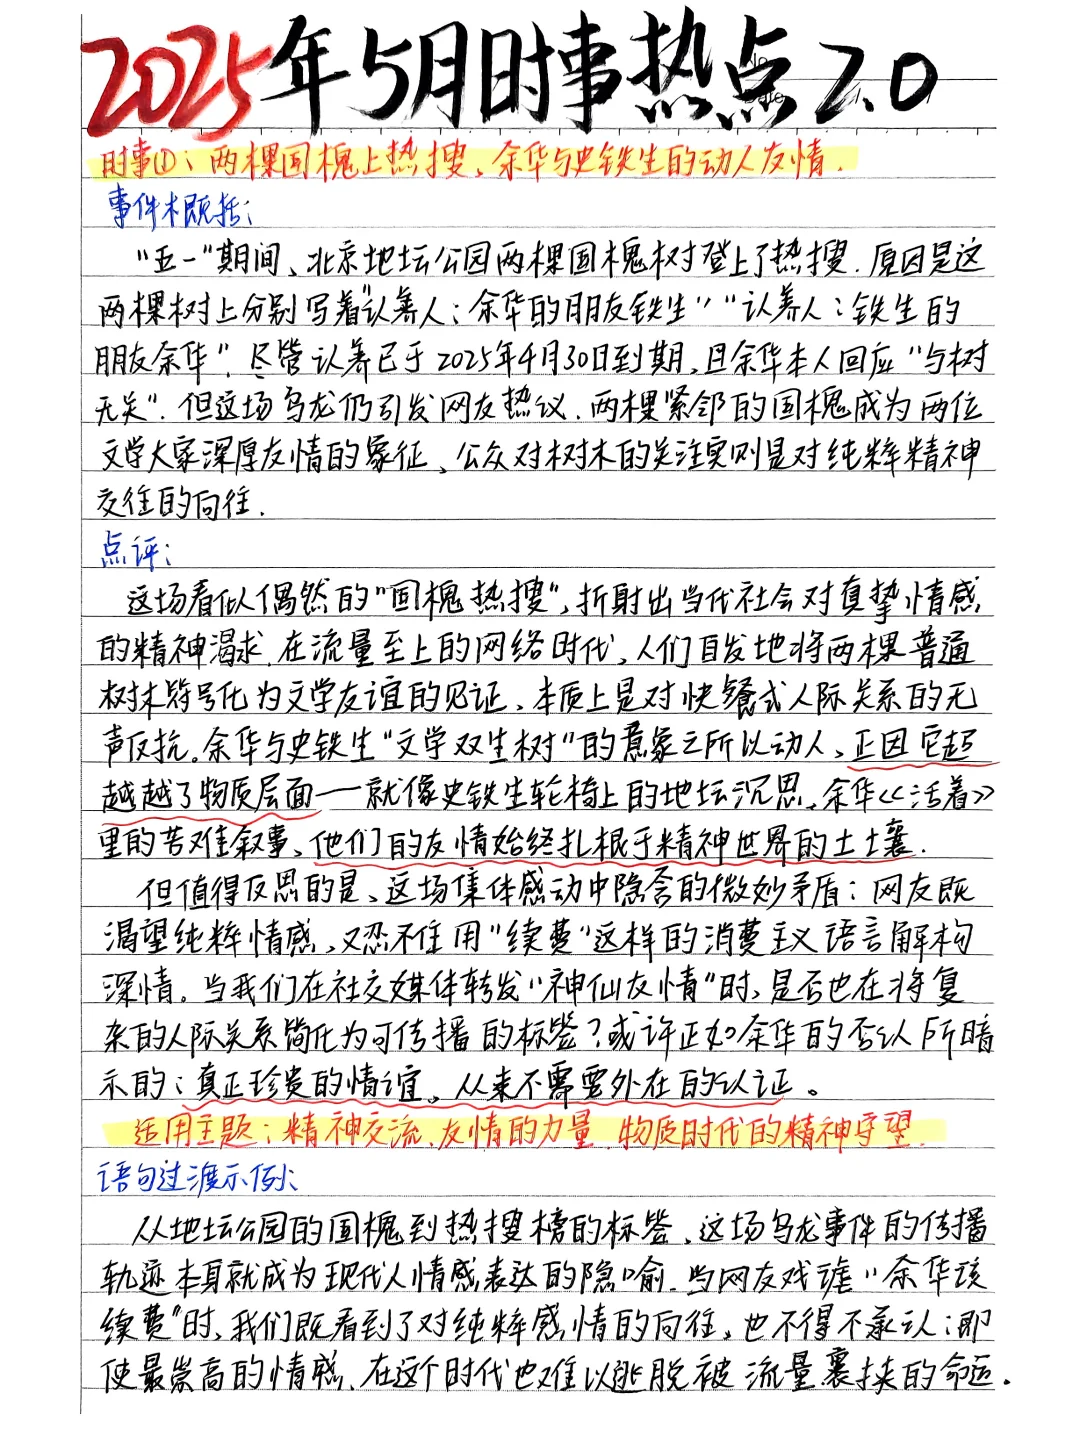 2025年5月时事热点2.0
No
Date
时事①：两棵国槐上热搜、余华与史铁生的动人友情.
事件概括：
“五一”期间、北京地坛公园两棵国槐树登上了热搜.原因是这
两棵树上分别写着“认养人：余华的朋友铁生”“认养人：铁生的
朋友余华”.尽管认养已于2025年4月30日到期,且余华本人回应“与树
无关”.但这场乌龙仍引发网友热议.两棵紧邻的国槐成为两位
文学大家深厚友情的象征、公众对树木的关注实则是对纯粹精神
交往的向往.
点评：
这场看似偶然的“国槐热搜”,折射出当代社会对真挚情感
的精神渴求.在流量至上的网络时代、人们自发地将两棵普通
树木符号化为文学友谊的见证、本质上是对快餐式人际关系的无
声反抗。余华与史铁生“文学双生树”的意象之所以动人、正因它超
越越了物质层面——就像史铁生轮椅上的地坛沉思、余华《活着》
里的苦难叙事、他们的友情始终扎根于精神世界的土壤.
但值得反思的是、这场集体感动中隐含的微妙矛盾：网友既
渴望纯粹情感、又忍不住用“续费”这样的消费主义语言解构
深情。当我们在社交媒体转发“神仙友情”时、是否也在将复
杂的人际关系简化为可传播的标签？或许正如余华的否认所暗
示的：真正珍贵的情谊、从来不需要外在的认证。
适用主题：精神交流、友情的力量、物质时代的精神守望.
语句过渡示例：
从地坛公园的国槐到热搜榜的标签、这场乌龙事件的传播
轨迹本身就成为现代人情感表达的隐喻.当网友戏谑“余华该
续费”时,我们既看到了对纯粹感情的向往、也不得不承认：即
使最崇高的情感、在这个时代也难以逃脱被流量裹挟的命运.